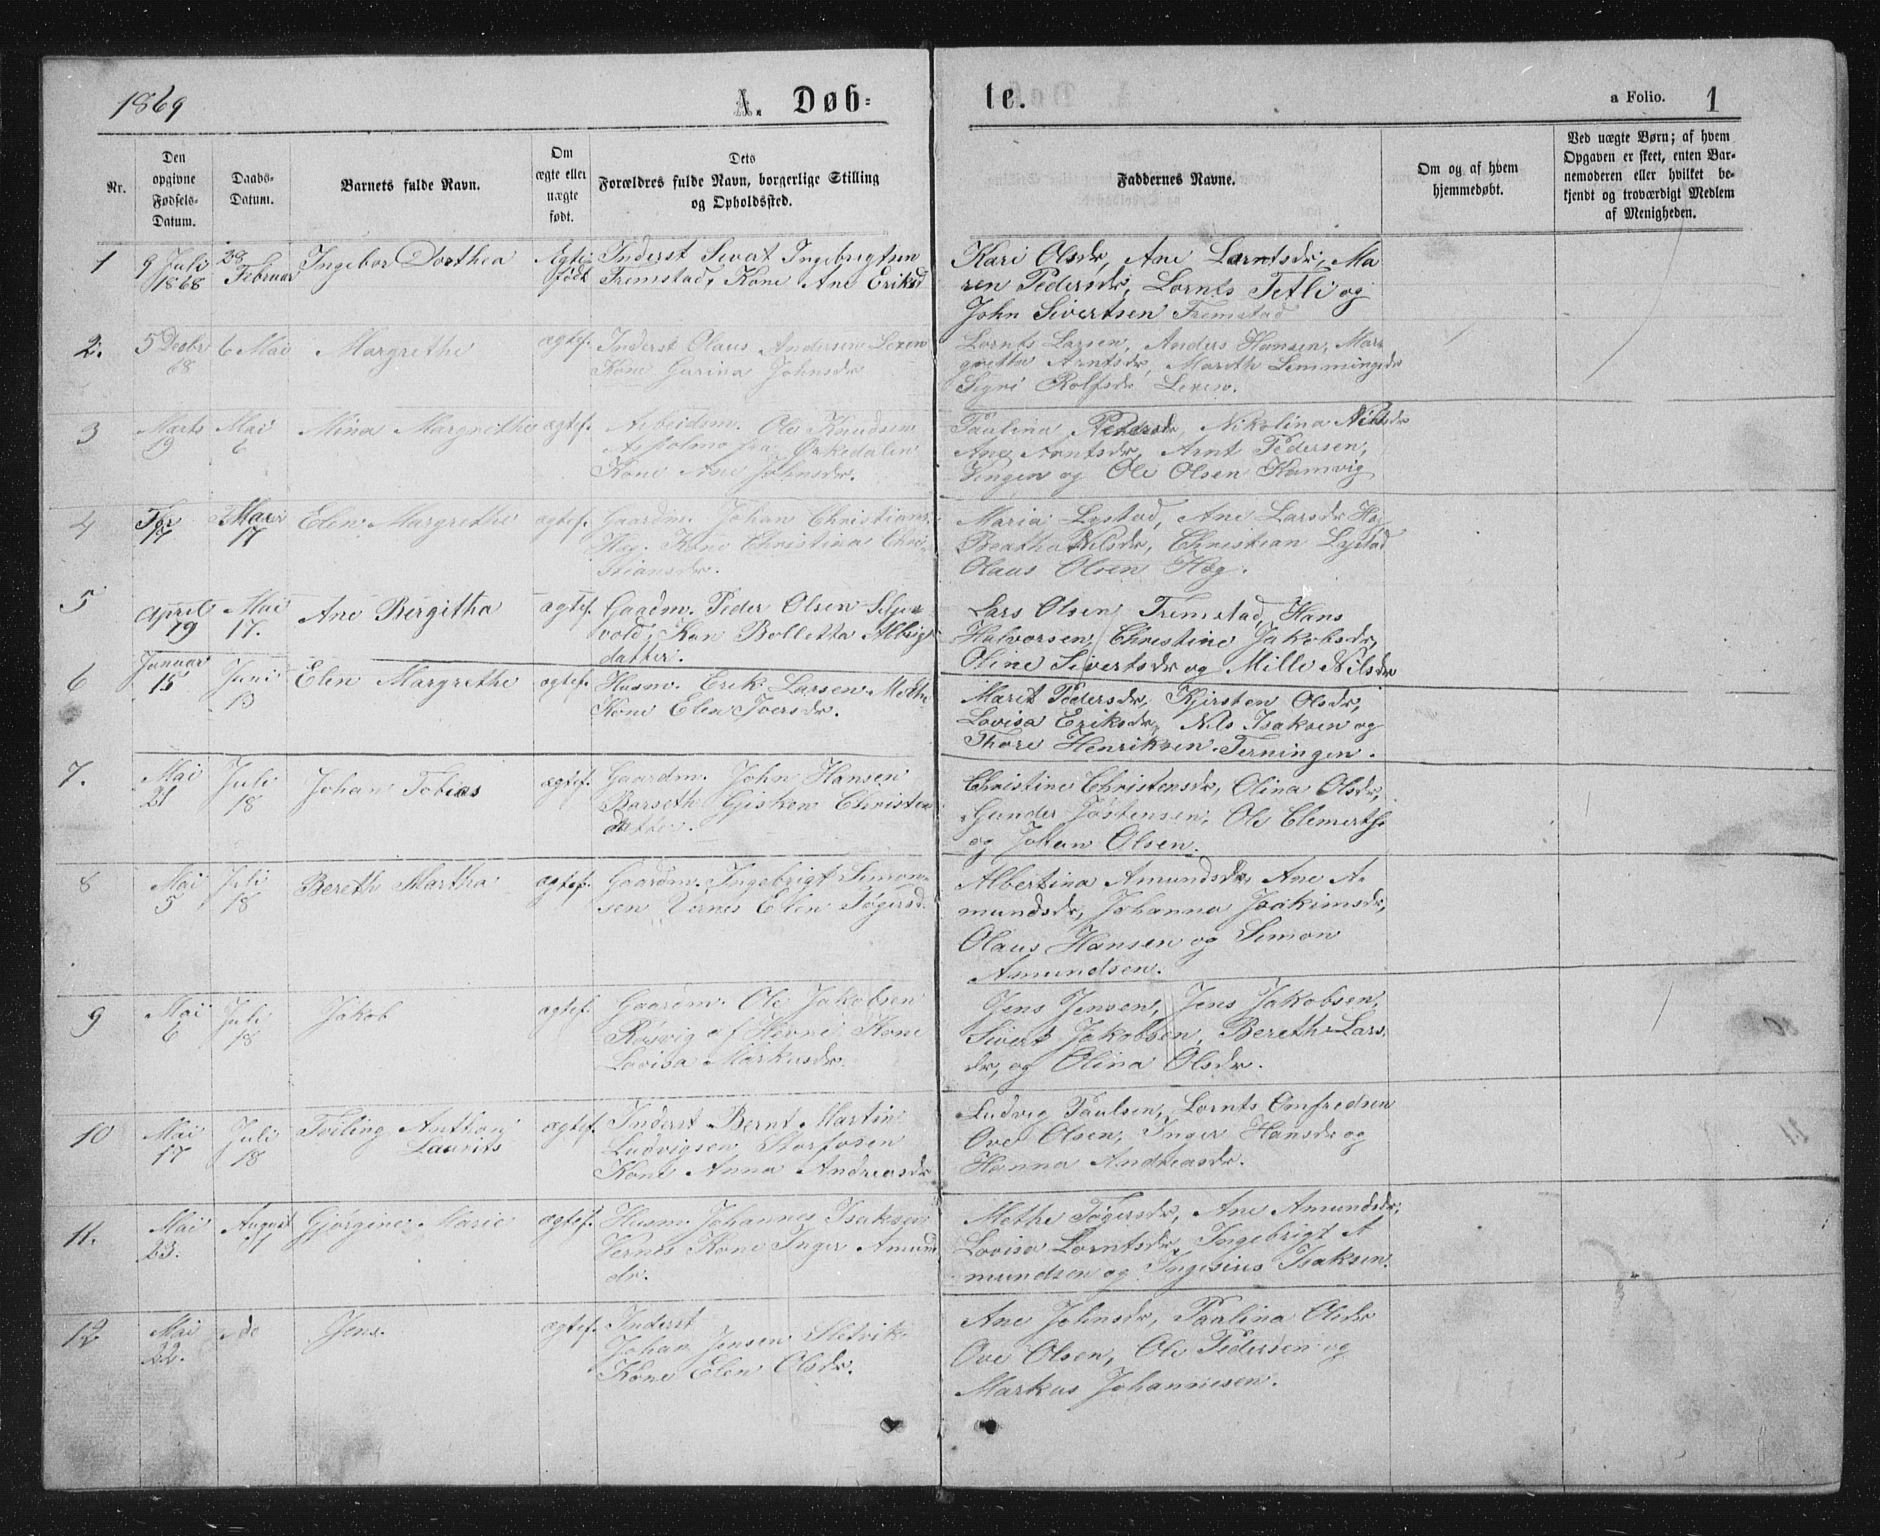 1869
A. Døb-
te.
a Folio. 1
Nr.
Den opgivne Fødsels-Datum.
Daabs-Datum.
Barnets fulde Navn.
Om ægte eller uægte født.
Dets Forældres fulde Navn, borgerlige Stilling og Opholdssted.
Faddernes Navne.
Om og af hvem hjemmedøbt.
Ved uægte Børn; af hvem Opgaven er skeet, enten Barnemoderen eller hvilket bekjendt og troværdigt Medlem af Menigheden.
1 9 Juli 1868 28 Februar Ingebor Dorthea Ægte født Inderst Sivert Ingebrigtsen
Fremstad, Kone Ane Eriksd
Kari Olsdr, Ane Larntsdr, Ma
ren Pedersdr, Lornts Tetli og
John Sivertsen Fremstad
2. 5 Decbr 68 6 Mai Margrethe ægtef. Inderst Olaus Andersen Lexen
Kone Gurina Johnsdr
Lornts Larsen, Anders Hansen, Mar
gretta Arntsdr, Mareth Lemmingsdr
Signi Rolfsdr Lexen.
3 Marts 19 Mai 6 Mina Margrethe ægtef. Arbeidsm. Ole Knudsen
Asbolmo fra Ørkedalen
Kone Ane Johnsdr.
Paulina Pedersdr, Nikolina Nilsdr
Ane Arntsdr, Arnt Pedersen,
Vingen og Ole Olsen Kamvig
4 17 Mai 17 Elen Margrethe ægtef. Gaardm. Johan Christians.
Hag. Kone Christina Chri
stiansdr.
Maria Lystad, Ane Larsdr Hag
Beatha Nilsdr, Christian Lystad
Olaus Olsen Hag.
5 April 19 Mai 17. Ane Bergitha ægtef. Gaardm. Peder Olsen Selje
vold, Kon Bolletta Albrigt
datter.
Lars Olsen Fremstad, Hans
Halvorsen, Christine Jakobsdr,
Oline Sivertsdr og Mille Nilsdr
6 Januar 15 Juni 13 Elen Margrethe ægtef. Husm. Erik Larsen Mothe
Kone Elen Iversdr.
Marit Pedersdr, Kjirsten Olsdr,
Lovisa Eriksdr, Nils Isaksen og
Thore Henriksen Terningen.
7. Mai 21 Juli 18 Johan Tobias ægtef. Gaardm. John Hansen
Barseth Gisken Christen
datter.
Christine Christensdr, Olina Olsdr,
Gunder Jøstensen, Ole Clemerts
og Johan Olsen.
8 Mai 5 Juli 18 Bereth Martha ægtef. Gaardm. Ingebrigt Simon-
sen Vernes Elen Tøgersd.
Albertina Amundsdr, Ane A-
mundsdr, Johanna Joakimsdr,
Olaus Hansen og Simon
Amundsen.
9 Mai 6 Juli 18 Jakob ægtef. Gaardm. Ole Jakobsen
Røsvig af Hevne Kone
Lovisa Markusdr.
Jens Jensen, Jens Jakobsen,
Sivert Jakobsen, Bereth Lars-
dr, og Olina Olsdr.
10 Mai 17 Juli 18 Tviling Anthon
Laurits ægtef. Inderst Bernt Martin
Ludvigsen Storfosen
Kone Anna Andreasdr
Ludvig Paulsen, Lornts Omfredsen
Ove Olsen, Inger Hansdr og
Hanna Andreasdr.
11. Mai 23. August 1 Gjørgine Marie ægtef. Husm. Johannes Isaksen
Vernes Kone Inger Amund
dr.
Methe Tøgersdr, Ane Amundsdr,
Lovisa Lorntsdr, Ingebrigt A
mundsen og Ingesius Isaksen.
12 Mai 22. do Jens. ægtef. Inderst
Johan Jensen Sletvik
Kone Elen Olsdr.
Ane Johnsdr, Paulina Olsdr
Ove Olsen, Ole Pedersen og
Markus Johannesen.